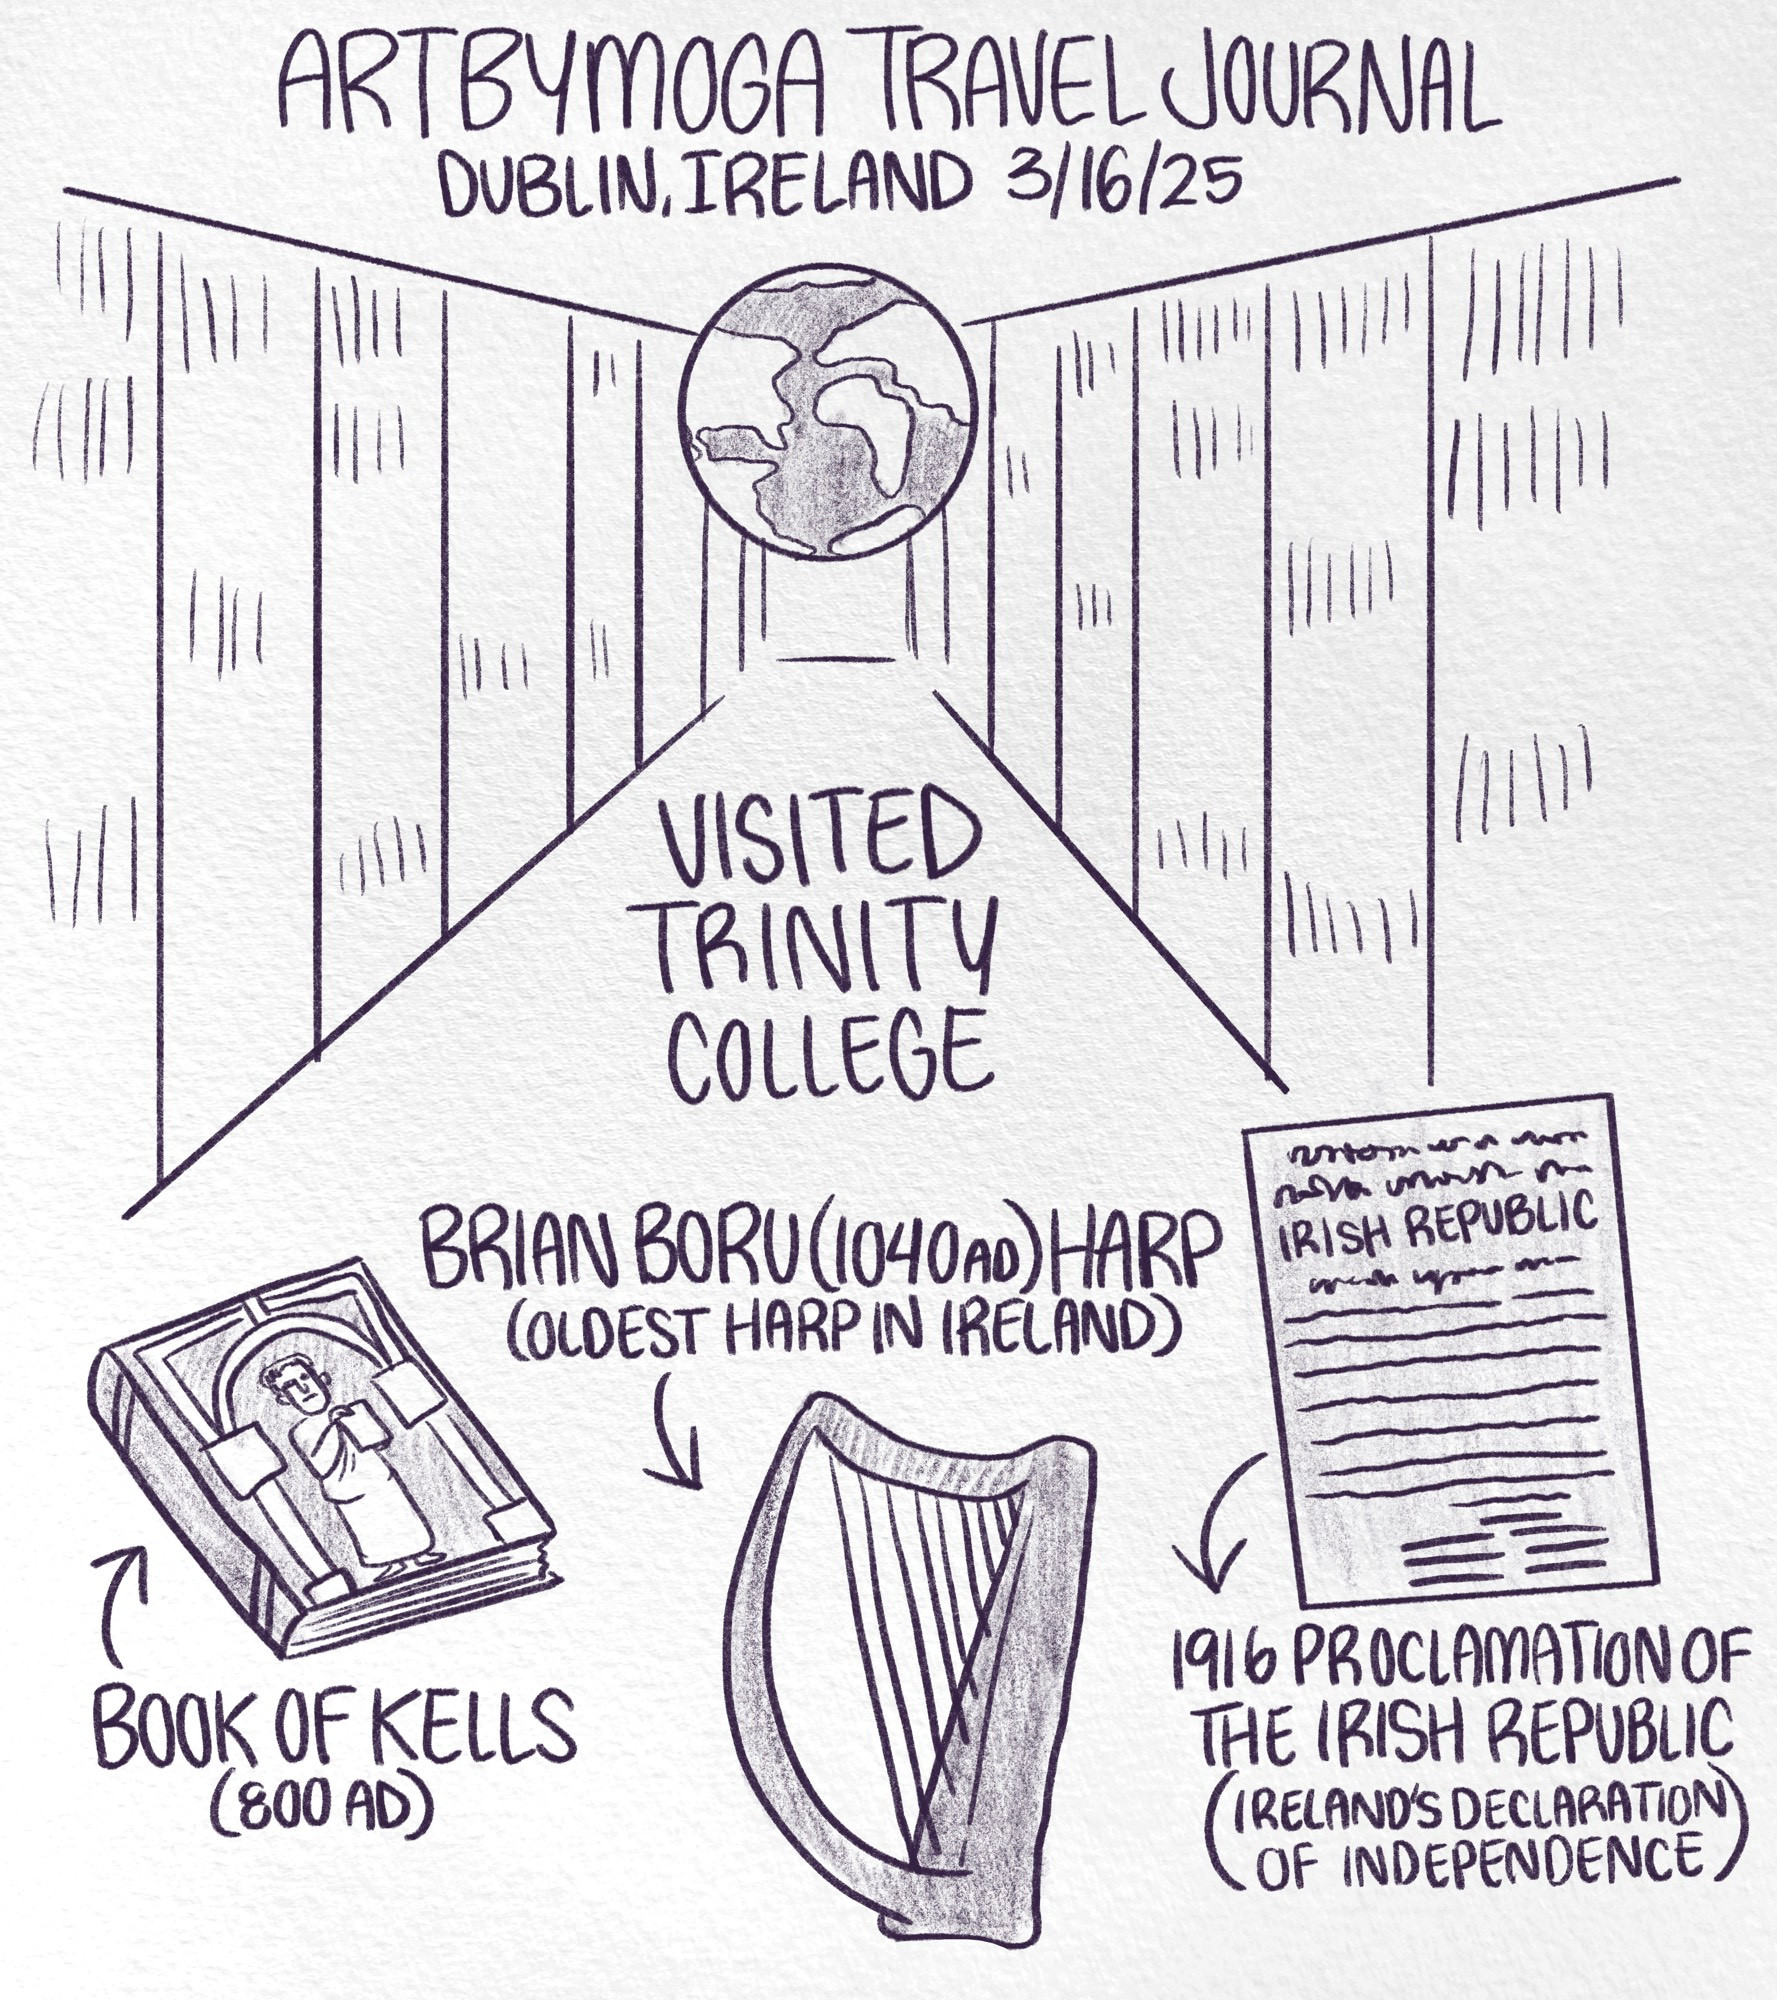 ARTBYMOGA TRAVEL JOURNAL
DUBLIN, IRELAND 3/16/25
VISITED
TRINITY
COLLEGE
BRIAN BORU (1040 AD) HARP
(OLDEST HARP IN IRELAND)
IRISH REPUBLIC
BOOK OF KELLS
(800 AD)
1916 PROCLAMATION OF
THE IRISH REPUBLIC
(IRELAND'S DECLARATION
OF INDEPENDENCE)